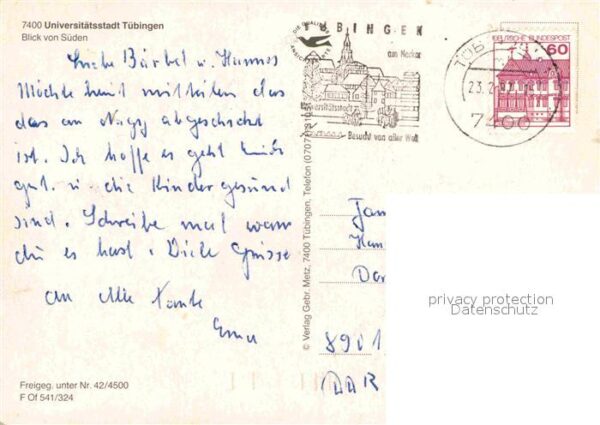 7400 Universitätsstadt Tübingen
Blick von Süden
Liebe Bärbel u. Hannes
Möchte mitteilen das
das an abgeschickt
ist. Ich hoffe es geht Euch
gut. u. die Kinder gesund
sind. Schreibe mal wann
du es hast. Viele Grüsse
an Alle Tante
Erna
DIE
TÜBINGEN
am Neckar
Universitätsstadt
Besucht von aller Welt
DEUTSCHE BUNDESPOST
60
TÜB
23.2
7400
© Verlag Gebr. Metz, 7400 Tübingen, Telefon (0707
Fam
Han
Dor
8901
DDR
privacy protection
Datenschutz
Freigeg. unter Nr. 42/4500
F Of 541/324